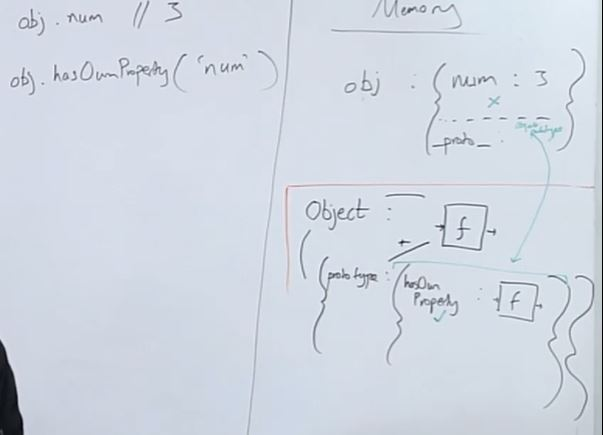 obj.num // 3
obj.hasOwnProperty('num')
Memory
obj : { num : 3 }
__proto__ :
Object :
f
+
prototype :
hasOwn
Property : f